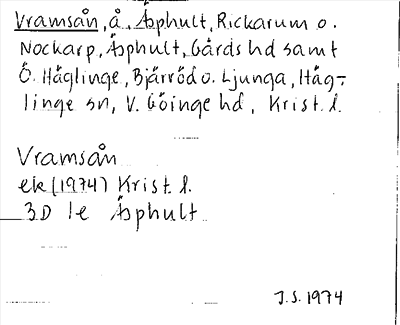 Vramsån, å, Äsphult, Rickarum o.
Nockarp, Äsphult, Gärds hd samt
Ö. Häglinge, Bjärröd o. Ljunga, Häg-
linge sn, V. Göinge hd, Krist. l.
Vramsån
ek (1974) Krist. l.
3D 1e Äsphult
J.S. 1974